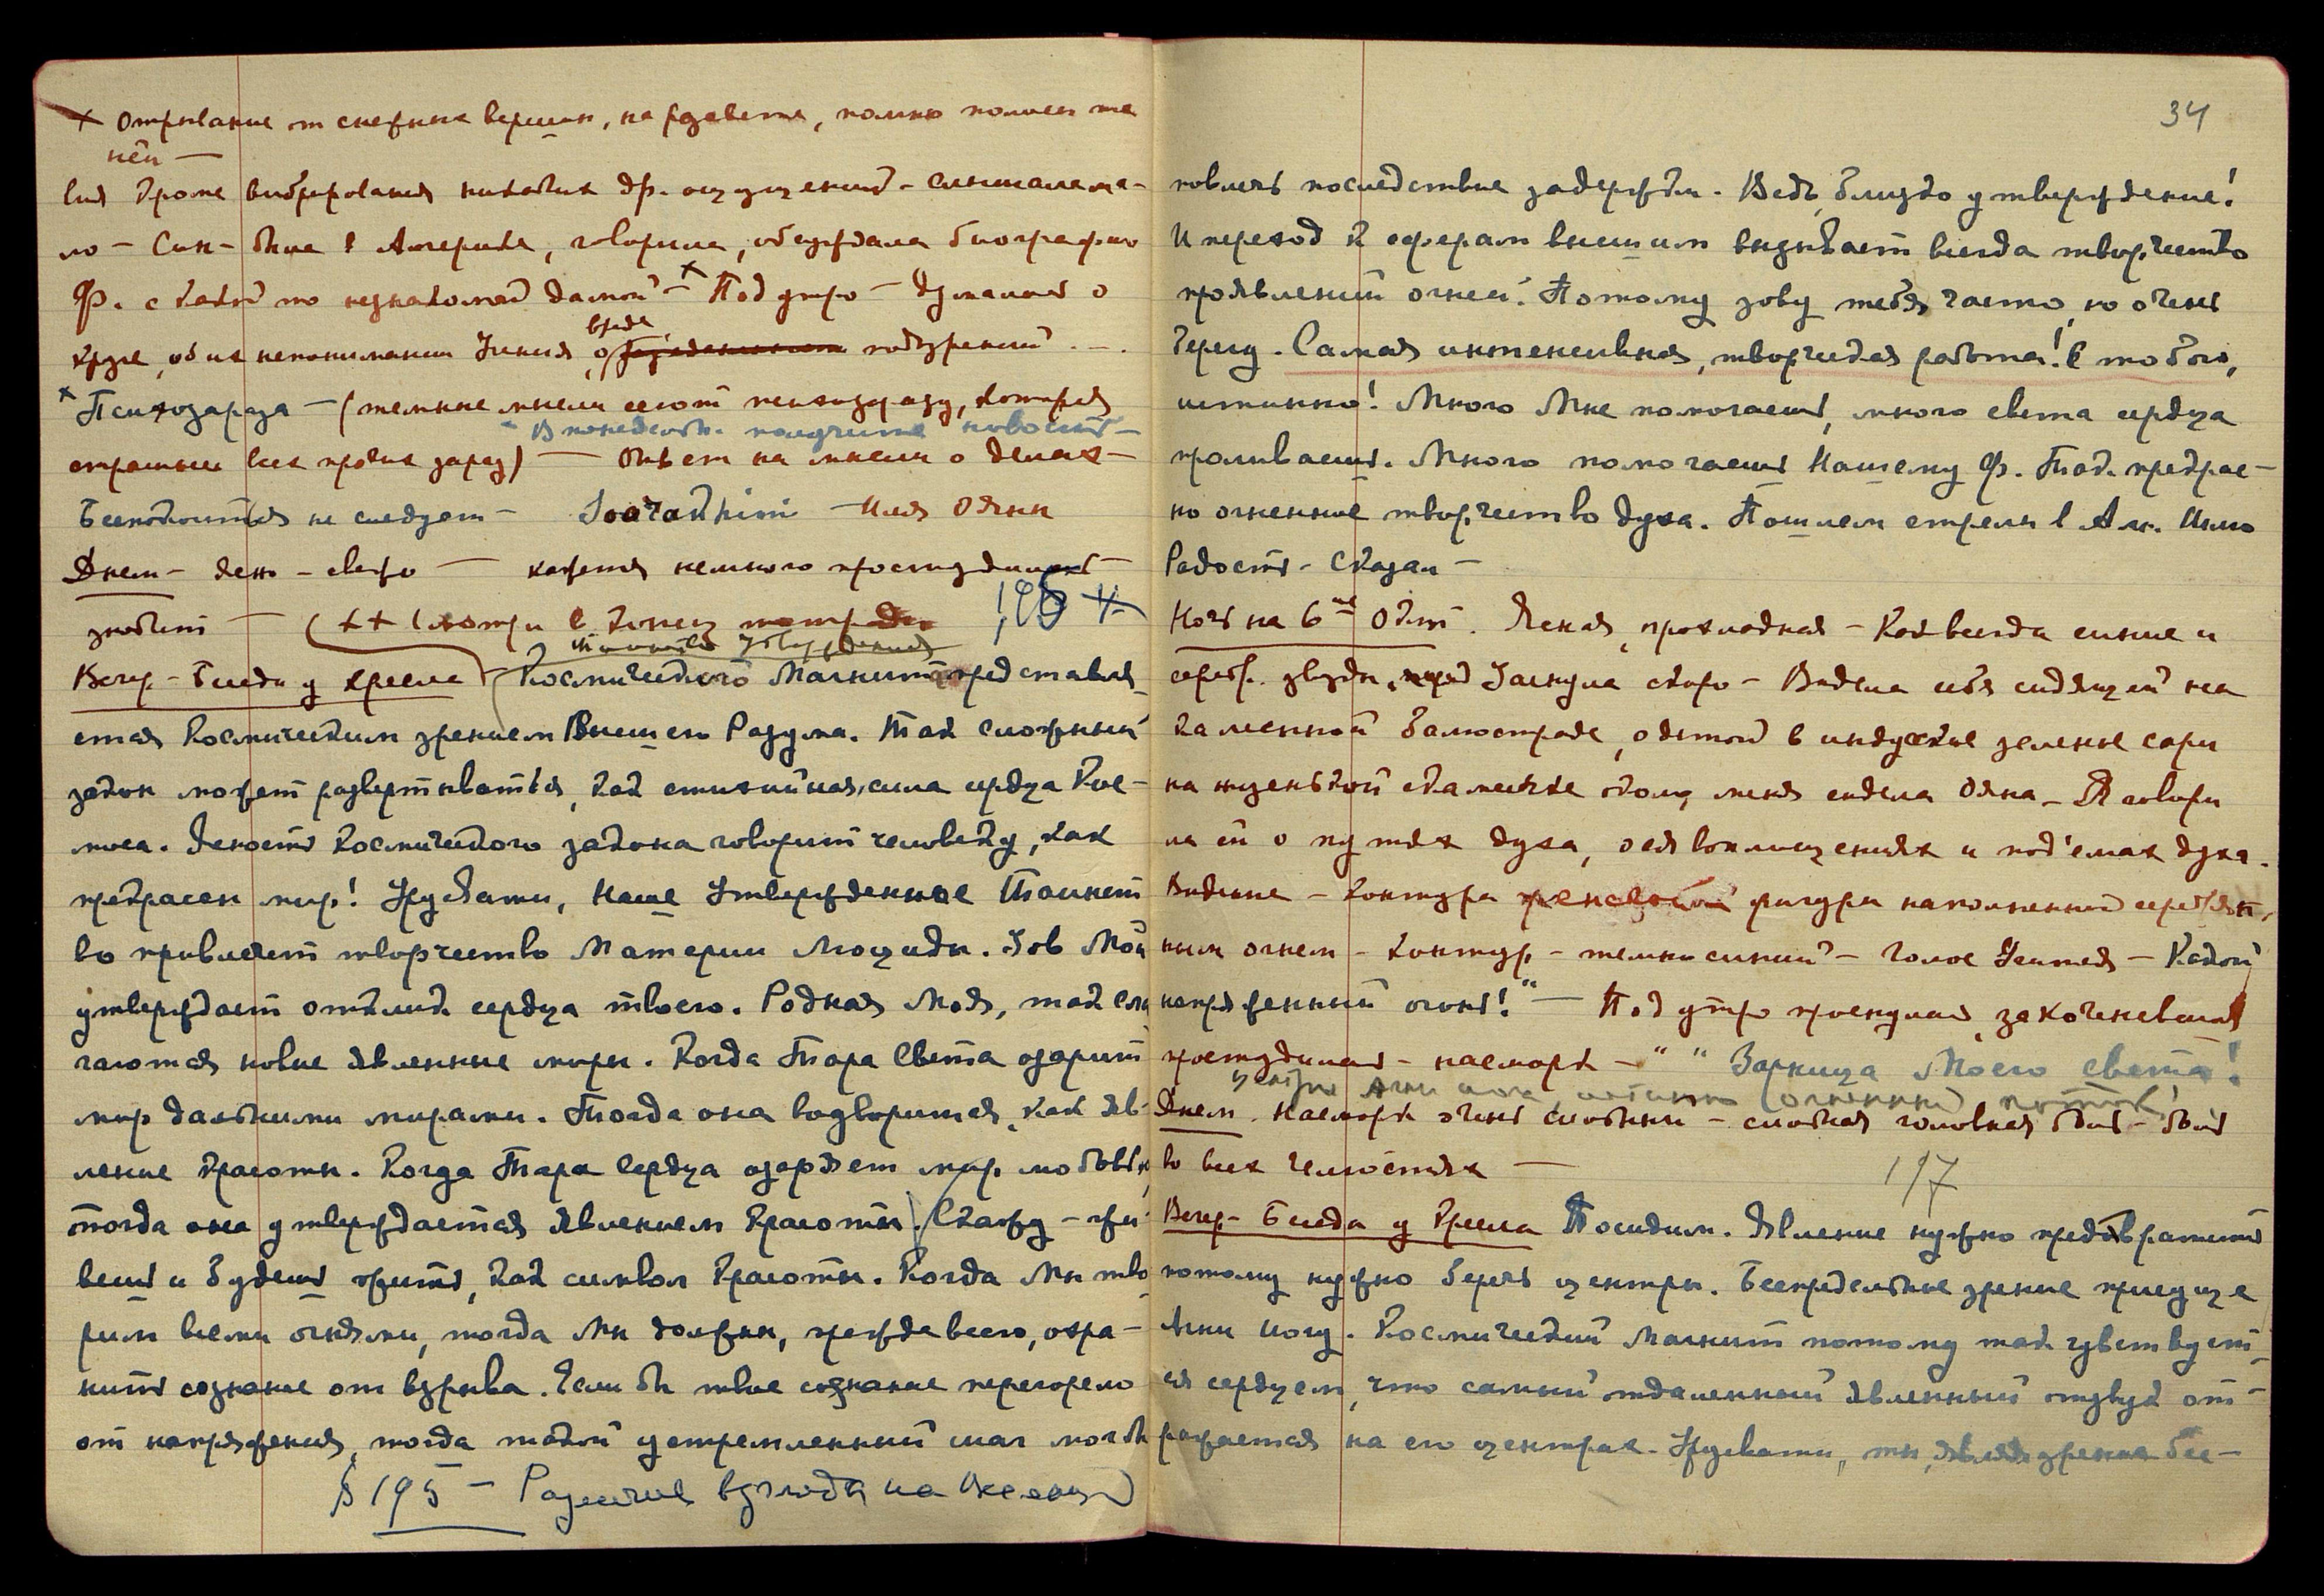 × Отрывание от снежных вершин, на рассвете, помню полет те
ней —
вия кроме вибрирования никаких др. ощущений — слышала ма-
ло — Сын-
в Америке, говорила, обсуждала биографию
Ф. с какой то незнакомой дамой — × Под утро — думалось о
вреде
круге, об их непонимании Учения, о подозрений . —.
× Психозараза — (темные мысли сеют психозаразу, которая
В понедельн. получите новости —
страшнее всех прочих зараз) — Ответ на мысли о делах —
Беспокоиться не следует — — Имя Ояны
Днем — ясно — свежо — кажется немного простудилась —
знобит — (×× смотри в конец тетради 196
Таинство Утверждения
Вечер — Беседа у кресла Космический Магнит представля-
ется Космическим зрением Высшего Разума. Так сложный
закон может развертываться, как стихийная сила сердца Кос-
моса. Ясность Космического закона говорит человеку, как
прекрасен мир! Урусвати, Наше Утвержденное Таинст
во привлекает творчество Материи Люциды. Зов Мой
утверждает отклик сердца твоего. Родная Моя, так слу
чаются новые явленные миры. Когда Тара Света озарит
мир дальними мирами. Тогда она водворится, как яв-
ление красоты. Когда Тара Сердца озаряет мир любовью,
тогда она утверждается явлением Красоты. Скажу — жи-
вешь и будешь жить, как символ Красоты. Когда Мы тво
рим всеми огнями, тогда Мы должны, прежде всего, охра-
нить сознание от взрыва. Если бы твое сознание перегорело
от напряжения, тогда такой устремленный шаг мог бы
§ 195 — Различие взгляда на
34
повлечь последствие задержки. Ведь близко утверждение!
И переход к сферам высшим вызывает всегда творчество
проявлений огней. Потому зову тебя часто, но очень
берегу. Самая интенсивная, творческая работа! с тобою,
истинно! Много Мне помогаешь, много света сердца
проливаешь. Много помогаешь Нашему Ф. Так прекрас-
но огненное творчество духа. Пошлем стрелы в Ам. Шлю
Радость — Сказал —
Ночь на 6ое Окт. Ясная, прохладная — Как всегда синие и
серебр. звезды, Заснула скоро — Видела себя сидящей на
каменной балюстраде, одетой в индусское зеленое сари
на низенькой скамейке около меня сидела Ояна — Я говори
ла ей о путях духа, о ея воплощениях и под'емах духа.
Видение — Контура женской фигуры наполненной серебрян-
ным огнем — контур — темно синий — Голос Учителя — Какой
напряженный огонь!" — Под утро проснулась закоченевшая
простудилась — насморк — " " Зарница Моего света!
центры Агни Иога, истинно (огненный) поток!
Днем. Насморк очень сильный — сильная головная боль — боль
во всех челюстях —
197
Вечер — Беседа у Кресла Посидим. Явление нужно предотвратить
потому нужно беречь центры. Беспредельное зрение присуще
Агни Иогу. Космический Магнит потому так чувствует-
ся сердцем, что самый отдаленный явленный отзвук от-
ражается на его центрах. Урусвати, ты, являя зрение бес-